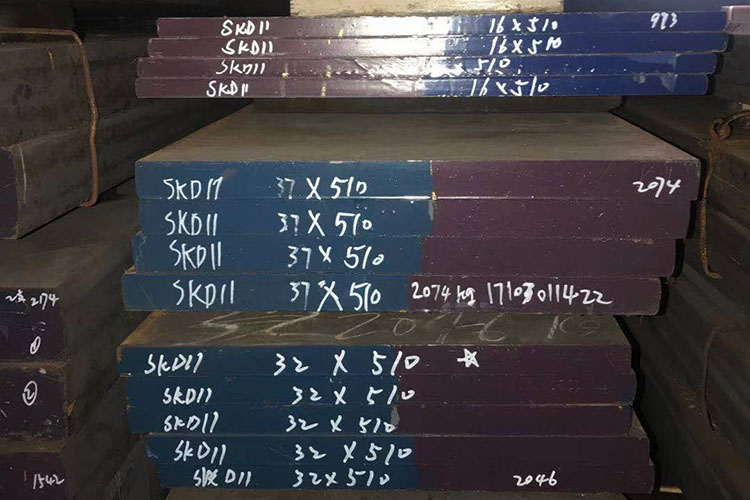 SKD11 16×510 983
SKD11 16×510
SKD11 16×510
SKD11 16×510
SKD11 37×510 2074
SKD11 37×510
SKD11 37×510
SKD11 37×510 2074kg
SKD11 32×510 ☆
SKD11 32×510
SKD11 32×510
SKD11 32×510
SKD11 32×510 2046
2174
①
②
1542